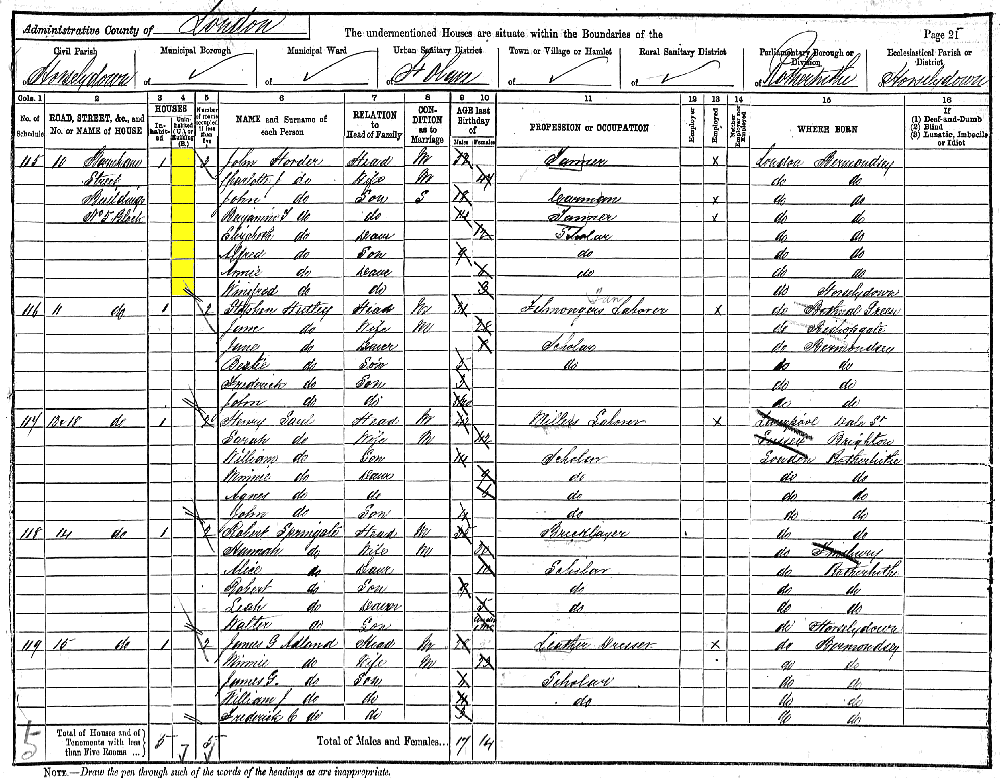 Administrative County of London The undermentioned Houses are situate within the Boundaries of the Page 21
Civil Parish Municipal Borough Municipal Ward Urban Sanitary District Town or Village or Hamlet Rural Sanitary District Parliamentary Borough or Division Ecclesiastical Parish or District
of Horselydown of of of St Olave of of of Rotherhithe of Horselydown
Cols. 1 2 3 4 5 6 7 8 9 10 11 12 13 14 15 16
No. of Schedule ROAD, STREET, &c., and No. or NAME of HOUSE HOUSES Inhabited Uninhabited (U.) or Building (B.) Number of rooms occupied if less than five NAME and Surname of each Person RELATION to Head of Family CONDITION as to Marriage AGE last Birthday of Males Females PROFESSION or OCCUPATION Employer Employed Neither Employer nor Employed WHERE BORN If (1) Deaf-and-Dumb (2) Blind (3) Lunatic, Imbecile or Idiot
115 10 1 John Horder Head M Tanner x London Bermondsey
Street Charlotte J do Wife M 44 do do
Buildings John do Son S 18 Carman x do do
No 5 Block Benjamin J do do 14 Tanner x do do
Elizabeth do Daur 12 Scholar do do
Alfred do Son 9 do do do
Annie do Daur 6 do do do
Winifred do do 3 do Horselydown
116 11 do 1 2 Stephen Head M 31 Felmongers Laborer x do Bethnal Green
Jane do Wife M 28 do Bishopsgate
Jane do Daur Scholar do Bermondsey
do Son 5 do do do
Frederick do Son 3 do do
John do do do do
117 12 & 13 do 1 Henry Saul Head M Millers Laborer x Liverpool
Sarah do Wife M 42 Sussex Brighton
William do Son 14 Scholar London Rotherhithe
Minnie do Daur 9 do do do
Agnes do do do do do
John do Son 4 do do do
118 14 do 1 2 Robert Springate Head M 35 Bricklayer do do
Hannah do Wife M 30 do Finsbury
Alice do Daur 10 Scholar do Rotherhithe
Robert do Son 8 do do do
Leah do Daur 5 do do do
Walter do Son do Horselydown
119 15 do 1 2 James G Adland Head M Leather Dresser x do Bermondsey
Minnie do Wife M 23 do do
James G. do Son Scholar do do
William J do do 4 do do do
Frederick C do do 3 do do
5 Total of Houses and of Tenements with less than Five Rooms ... 5 5 Total of Males and Females... 17 14
NOTE.—Draw the pen through such of the words of the headings as are inappropriate.